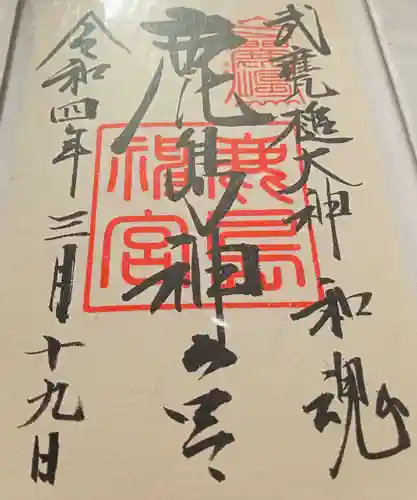 武甕槌大神 和魂
鹿島神宮
鹿島神宮
令和四年三月十九日